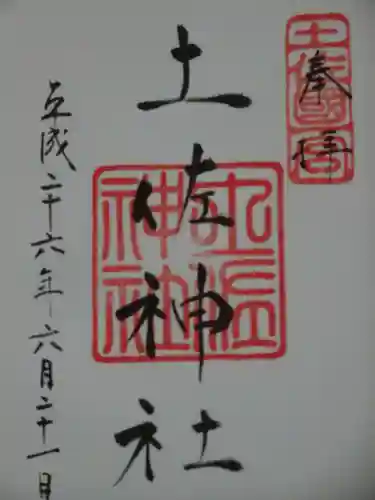 奉拝
土佐神社
平成二十六年六月二十一日
土佐神社